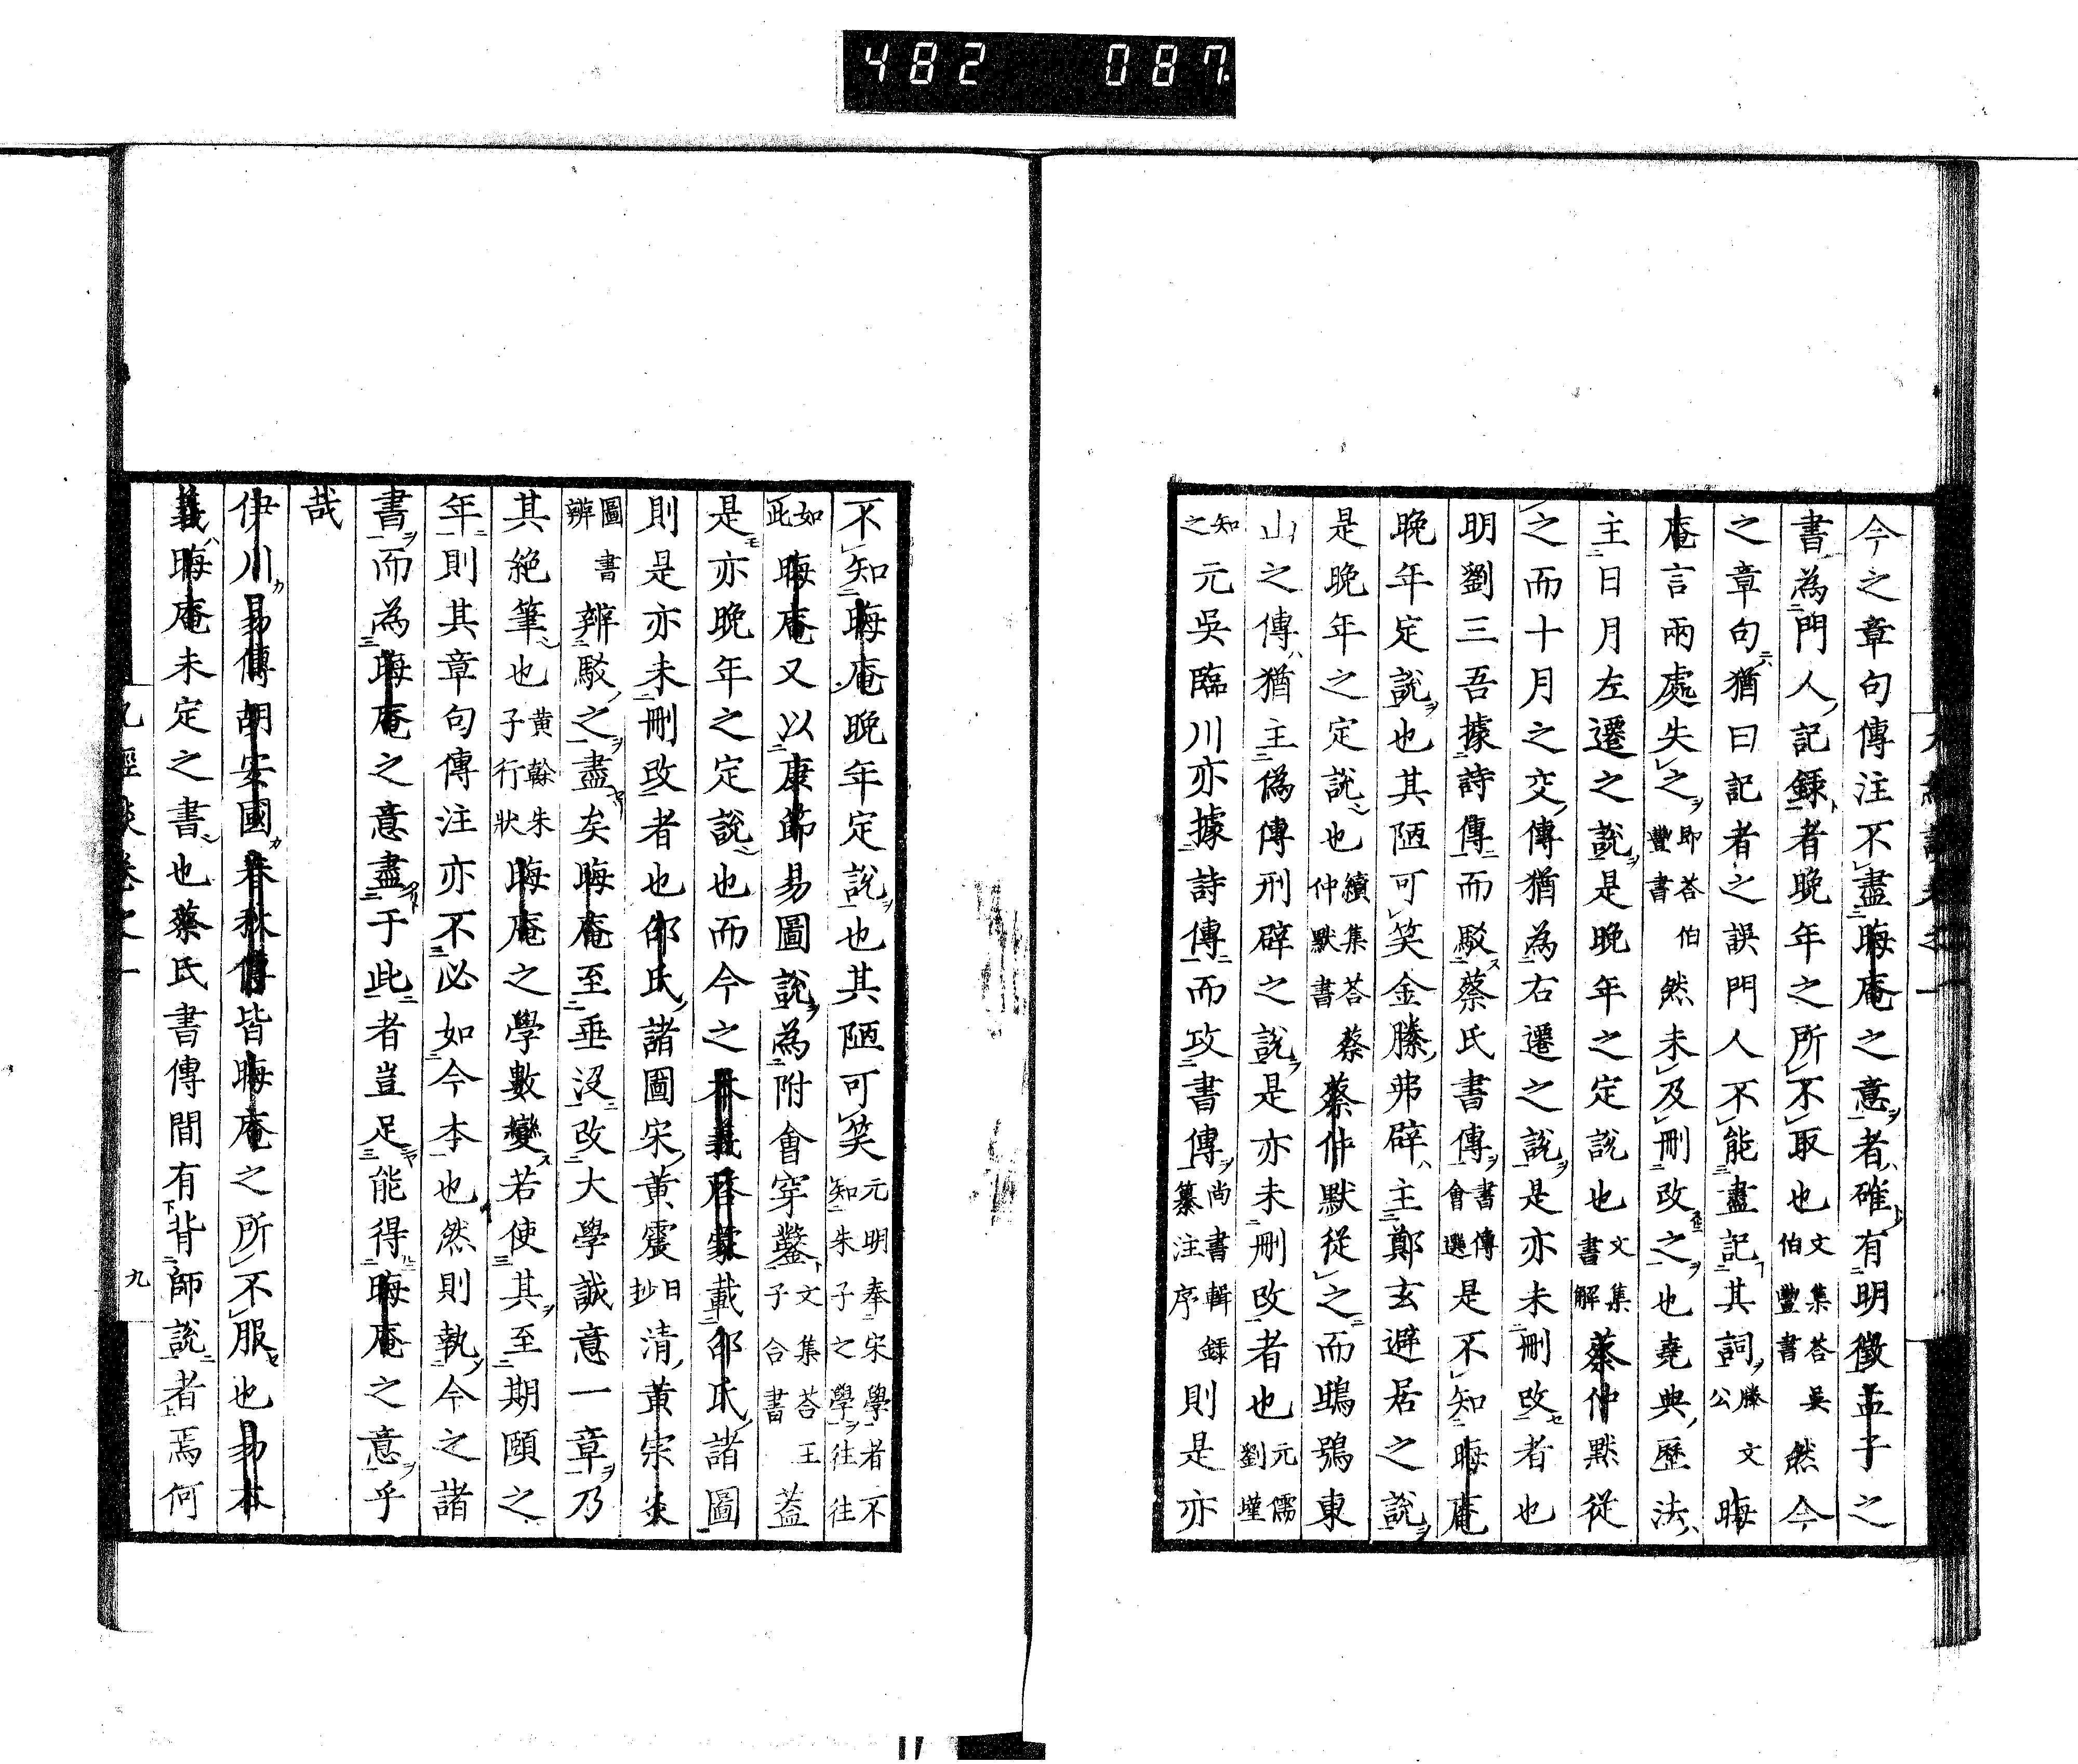 482 087
今之章句傳注不盡晦庵之意者確有明徵孟子之
書為門人記錄者晚年之所不取也文集荅吳伯豐書然今
之章句猶曰記者之誤門人不能盡記其詞滕文公晦
庵言兩處失之即荅伯豐書然未及刪改之也堯典歷法
主日月左遷之說是晚年之定說也文集書解蔡仲默從
之而十月之交傳猶為右遷之說是亦未刪改者也
明劉三吾據詩傳而駁蔡氏書傳書傳會選是不知晦庵
晚年定說也其陋可笑金縢弗辟主鄭玄避居之說
是晚年之定說也續集荅蔡仲默書蔡仲默從之而鴟鴞東
山之傳猶主偽傳刑辟之說是亦未刪改者也元儒劉墐
知之元吳臨川亦據詩傳而攻書傳尚書輯錄纂注序則是亦
不知晦庵晚年定說也其陋可笑元明奉宋學者不知朱子之學往往
如此晦庵又以康節易圖說為附會穿鑿文集荅王子合書蓋
是亦晚年之定說也而今之本義啓蒙載邵氏諸圖
則是亦未刪改者也邵氏諸圖宋黃震日抄清黃宗炎
圖書辨辨駁之盡矣晦庵至垂沒改大學誠意一章乃
其絕筆也黃榦朱子行狀晦庵之學數變若使其至期頤之
年則其章句傳注亦不必如今本也然則執今之諸
書而為晦庵之意盡于此者豈足能得晦庵之意乎
哉
伊川易傳胡安國春秋傳皆晦庵之所不服也易本
義晦庵未定之書也蔡氏書傳間有背師說者焉何
九經談卷之一
九